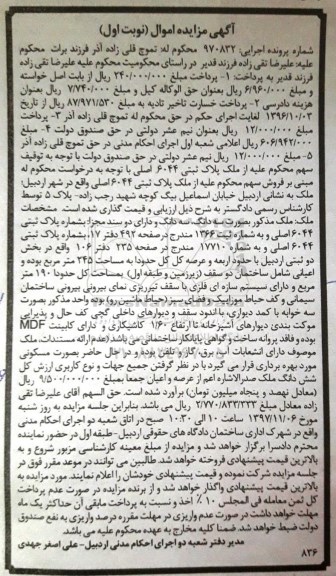 آگهی مزایده اموال (نوبت اول)
شماره پرونده اجرایی: ۹۷۰۸۳۲ محکوم له: تموچ قلی زاده آذر فرزند برات محکوم
علیه: علیرضا تقی زاده فرزند قدیر در راستای محکومیت محکوم علیه علیرضا تقی زاده
فرزند قدیر به پرداخت: ۱- پرداخت مبلغ ۲۴۰/۰۰۰/۰۰۰ ریال از بابت اصل خواسته
و مبلغ ۶/۹۶۰/۰۰۰ ریال بعنوان حق الوکاله کیل و مبلغ ۷/۷۴۰/۰۰۰ ریال بعنوان
هزینه دادرسی ۲- پرداخت خسارت تاخیر تادیه به مبلغ ۸۷/۹۷۱/۵۳۰ ریال از تاریخ
۱۳۹۶/۱۰/۰۳ لغایت اجرای حکم در حق محکوم له تموچ قلی زاده آذر ۳- پرداخت
مبلغ ۱۲/۰۰۰/۰۰۰ ریال بعنوان نیم عشر دولتی در حق صندوق دولت ۴- مبلغ
۶۰۶/۹۴۲/۰۰۰ ریال اعلامی شعبه اول اجرای احکام مدنی در حق تموچ قلی زاده آذر
۵- مبلغ ۱۲/۰۰۰/۰۰۰ ریال نیم عشر دولتی در حق صندوق دولت با توجه به توقیف
سهم محکوم علیه از ملک پلاک ثبتی ۶۰۴۴ اصلی با توجه به درخواست محکوم له
مبنی بر فروش سهم محکوم علیه از ملک پلاک ثبتی ۶۰۴۴ اصلی واقع در شهر اردبیل؛
ملک به نشانی اردبیل خیابان اسماعیل بیگ کوچه شهید رجب زاده- پلاک ۵ توسط
کارشناس رسمی دادگستر به شرح ذیل ارزیابی و قیمت گذاری شده است. مشخصات
ملک: ملک مذکور بصورت سه دانگ، سه دانگ و دارای دو سند مجزا؛ بشماره پلاک ثبتی
۶۰۴۴ اصلی و به شماره ثبت ۱۳۶۶ مندرج در صفحه ۴۹۲ دفتر ۱۷، بشماره پلاک ثبتی
۶۰۴۴ اصلی و به شماره ۱۷۷۱۰ مندرج در صفحه ۲۳۵ دفتر ۱۰۶ واقع در بخش
دو ثبتی اردبیل با حدود اربعه و عرصه کل کل حدودا به مساحت ۲۴۵ متر مربع بوده و
اعیانی شامل ساختمان دو سقف (زیرزمین و طبقه اول) بمساحت کل حدودا ۱۹۰ متر
مربع و دارای سیستم سازه ای فلزی با سقف تیرریزی نمای بیرونی بیرونی ساختمان
سیمانی و کف حیاط موزائیک و فضای سبز (حیاط ماشین رو) بوده واحد مذکور بصورت
سه خوابه با کمد دیواری، با اندود سقف و دیوارهای داخلی گچی کف حال و پذیرایی
موکت بندی دیوارهای آشپزخانه تا ارتفاع ۱/۶۰ کاشیکاری و دارای کابینت MDF
بوده و فاقد پروانه ساخت و گواهی پایانکار ساختمانی می باشد (عدم ارائه مستندات)، ملک
موصوف دارای انشعابات آب، برق، گاز و تلفن بوده و در حال حاضر بصورت مسکونی
مورد بهره برداری قرار می گیرد با در نظر گرفتن جمیع جهات و نوع کاربری ارزش کل
شش دانگ ملک صدرالاشاره اعم از عرصه و اعیان جمعا بمبلغ ۹/۵۰۰/۰۰۰/۰۰۰ ریال
(معادل نهصد و پنجاه میلیون تومان) برآورد شده است. حق السهم آقای علیرضا تقی
زاده معادل مبلغ ۲/۷۷۰/۸۳۳/۳۳۳ ریال می باشد. بنابراین جلسه مزایده به روز شنبه
مورخ ۱۳۹۷/۱۱/۰۶ ساعت ۱۰ الی ۱۰:۳۰ صبح در اتاق شعبه دو اجرای احکام مدنی
واقع در شهرک اداری ساختمان دادگاه های حقوقی اردبیل-طبقه اول در حضور نماینده
محترم دادسرا برگزار خواهد شد و مزایده از مبلغ معینه کارشناسی مزبور شروع و به
بالاترین قیمت پیشنهادی فروخته خواهد شد. طالبین می توانند در موعد مقرر فوق در
جلسه مزایده شرکت نموده و قیمت پیشنهادی خودشان را اعلام نمایند. مورد مزایده به
بالاترین قیمت پیشنهادی واگذار خواهد شد و از برنده مزایده در صورت عدم پرداخت
کل ثمن معامله فی المجلس ۱۰٪ اخذ و نسبت به پرداخت مابقی آن حداکثر یک ماه
مهلت خواهد داشت در صورت عدم واریزی در مهلت مقرره درصد واریزی به نفع صندوق
دولت ضبط خواهد شد. ضمنا کلیه مخارج به عهده محکوم علیه می باشد.
مدیر دفتر شعبه دو اجرای احکام مدنی اردبیل- علی اصغر جهدی
۸۳۶